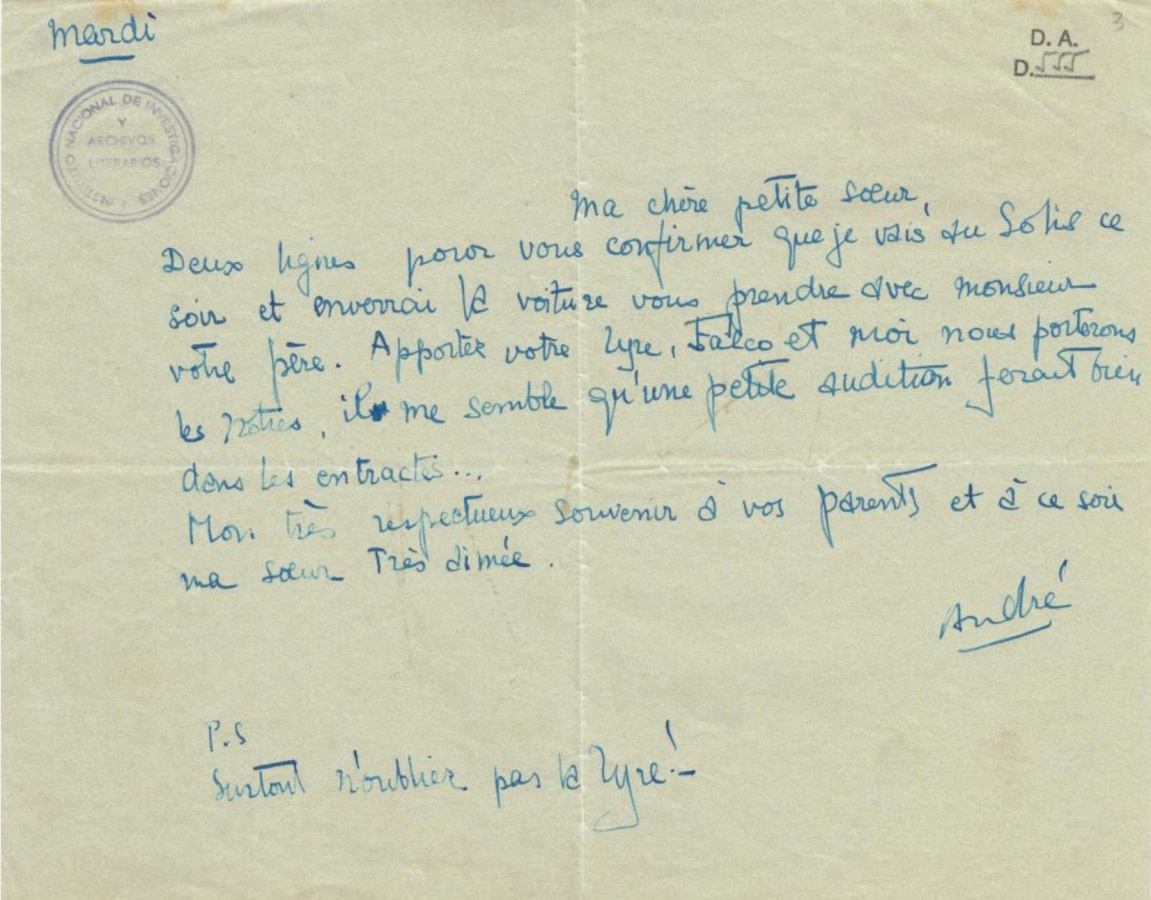 Mardi
3
D. A.
D. 555
INSTITUTO NACIONAL DE INVESTIGACIONES
Y
ARCHIVOS
LITERARIOS
Ma chère petite sœur,
Deux lignes pour vous confirmer que je vais au Solis ce
soir et enverrai la voiture vous prendre avec monsieur
votre père. Apportez votre lyre, Falco et moi nous porterons
les notres, il me semble qu'une petite audition ferait bien
dans les entractes...
Mon très respectueux souvenir à vos parents et à ce soir
ma sœur Très aimée.
André
P.S
Surtout n'oublier pas la lyre!-